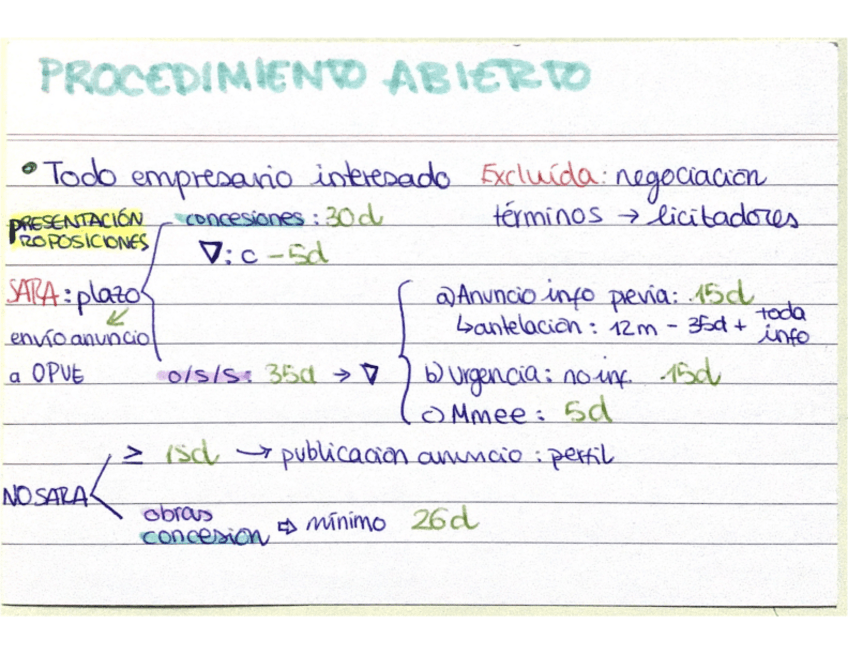 PROCEDIMIENTO ABIERTO
• Todo empresario interesado Excluída: negociación
términos → licitadores
PRESENTACIÓN
PROPOSICIONES
concesiones: 30d
∇: c - 5d
SARA: plazo
envío anuncio
a OPUE
o/s/s: 35d → ∇
a) Anuncio info previa: 15d
↳ antelación: 12m - 35d + toda info
b) Urgencia: no inf. 15d
c) Mmee: 5d
NO SARA
≥ 15d → publicación anuncio: perfil
obras
concesión ⇨ mínimo 26d